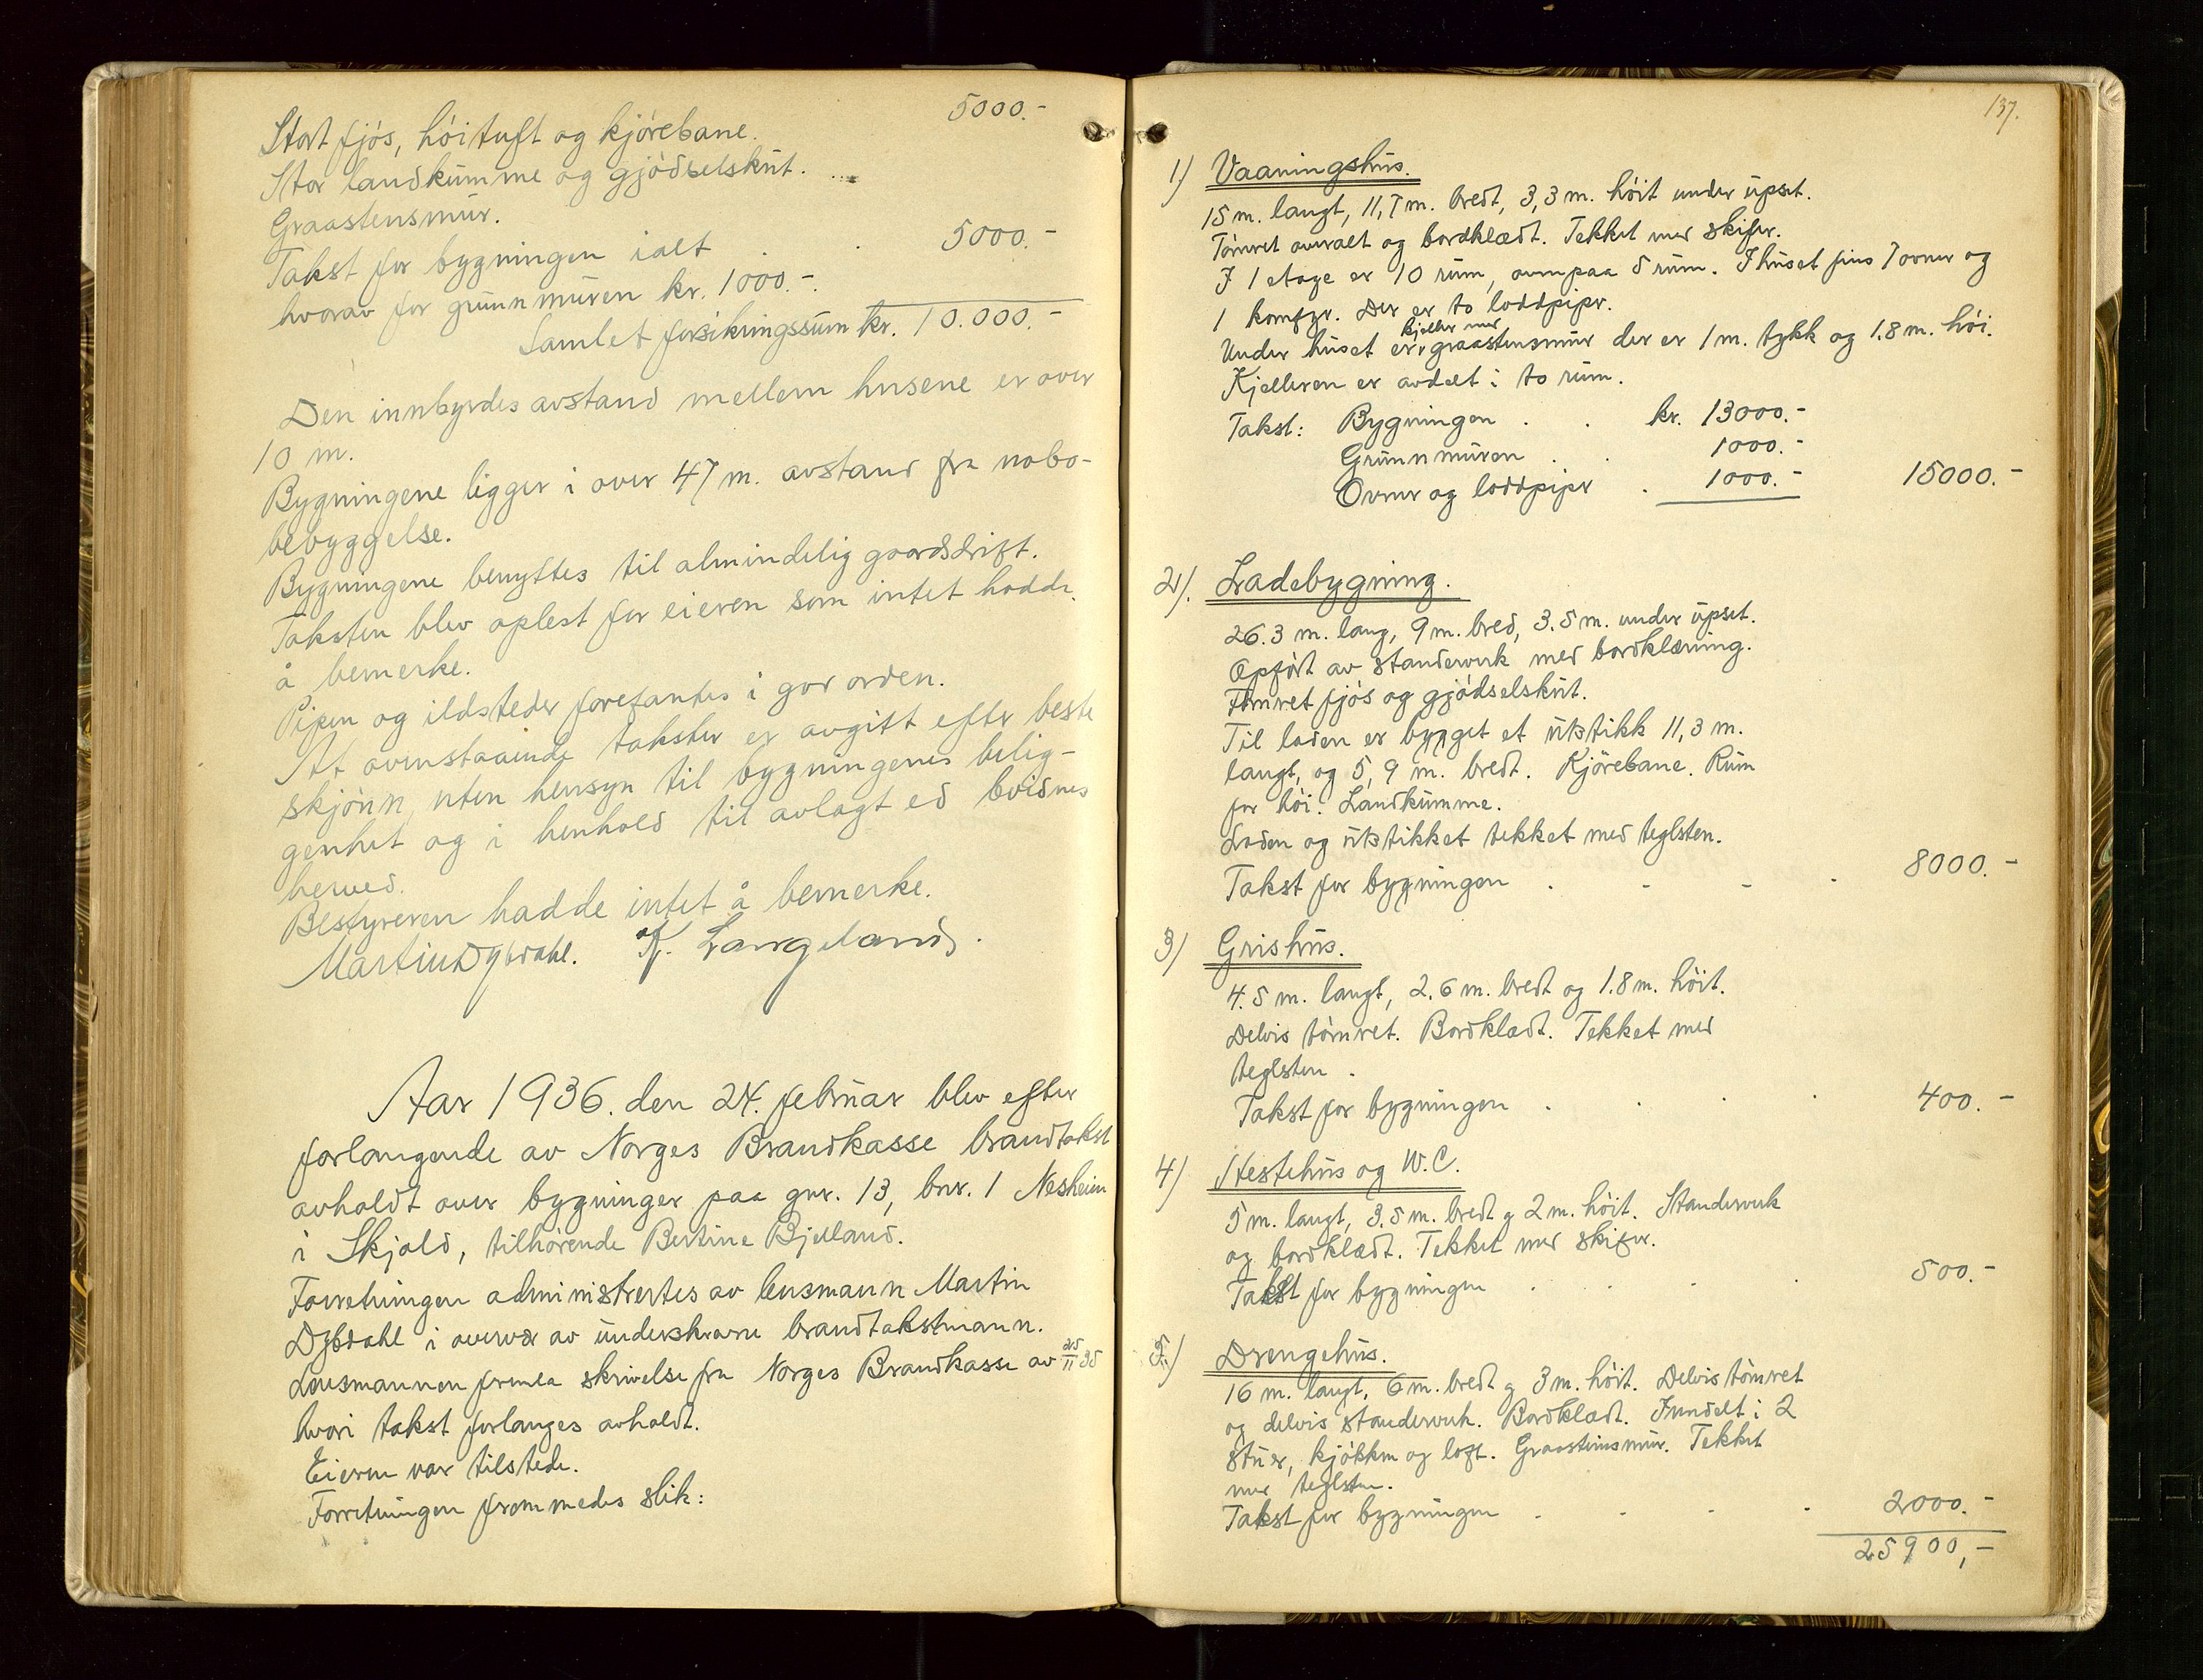 5000.-
Stort fjós, hóituft og kjórebane.
Stor landkumme og gjódselskut.
Graastensmur.
Takst for bygningen ialt . 5000.-
hvorav for grunnmuren kr. 1000.-.
Samlet forsikringssum kr. 10.000.-
Den innbyrdes avstand mellem husene er over
10 m.
Bygningene ligger i over 47 m. avstand fra nabo-
bebyggelse.
Bygningene benyttes til almindelig gaardsdrift.
Taksten blev oplest for eieren som intet hadde
å bemerke.
Pipen og ildsteder forefantes i god orden.
At ovenstaaende takster er avgitt efter beste
skjónn, uten hensyn til bygningenes belig-
genhet og i henhold til avlagt ed bevidnes
herved.
Bestyreren hadde intet å bemerke.
Martin Dybdahl. K. Langeland.
Aar 1936. den 24. februar blev efter
forlangende av Norges Brandkasse brandtakst
avholdt over bygninger paa gnr. 13, bnr. 1 Nesheim
i Skjold, tilhørende Bertine Bjelland.
Forretningen administrertes av lensmann Martin
Dybdahl i overvær av underskrevne brandtakstmann.
Lensmannen fremla skrivelse fra Norges Brandkasse av 25/11 35
hvori takst forlanges avholdt.
Eieren var tilstede.
Forretningen fremmedes slik:
137.
1) Vaaningshus.
15 m. langt, 11,7 m. bredt, 3,3 m. hóit under upset.
Tómret overalt og bordklædt. Tekket med skifer.
I 1 etage er 10 rum, ovenpaa 5 rum. I huset fins 7 ovner og
1 komfyr. Der er to loddpiper.
kjeller med
Under huset er graastensmur der er 1 m. tykk og 1.8 m. hói.
Kjelleren er avdelt i to rum.
Takst: Bygningen . . kr. 13000.-
Grunnmuren . . 1000.-
Ovner og loddpiper . 1000.- 15000.-
2). Ladebygning.
26.3 m. lang, 9 m. bred, 3.5 m. under upset.
Opfórt av standerverk med bordklædning.
Tómret fjós og gjódselskut.
Til laden er bygget et utstikk 11,3 m.
langt, og 5,9 m. bredt. Kjórebane. Rum
for hói. Landkumme.
Laden og utstikket tekket med teglsten.
Takst for bygningen . . . . 8000.-
3) Grishus.
4.5 m. langt, 2.6 m. bredt og 1.8 m. hóit.
Delvis tómret. Bordklædt. Tekket med
teglsten.
Takst for bygningen . . . . 400.-
4) Hestehus og W.C.
5 m. langt, 3.5 m. bredt og 2 m. hóit. Standerverk
og bordklædt. Tekket med skifer.
Takst for bygningen . . . . 500.-
5) Drengehus.
16 m. langt, 6 m. bredt og 3 m. hóit. Delvis tómret
og delvis standerverk. Bordklædt. Inndelt i 2
stuer, kjókken og loft. Graastensmur. Tekket
med teglsten.
Takst for bygningen . . . . 2000.-
25900,-